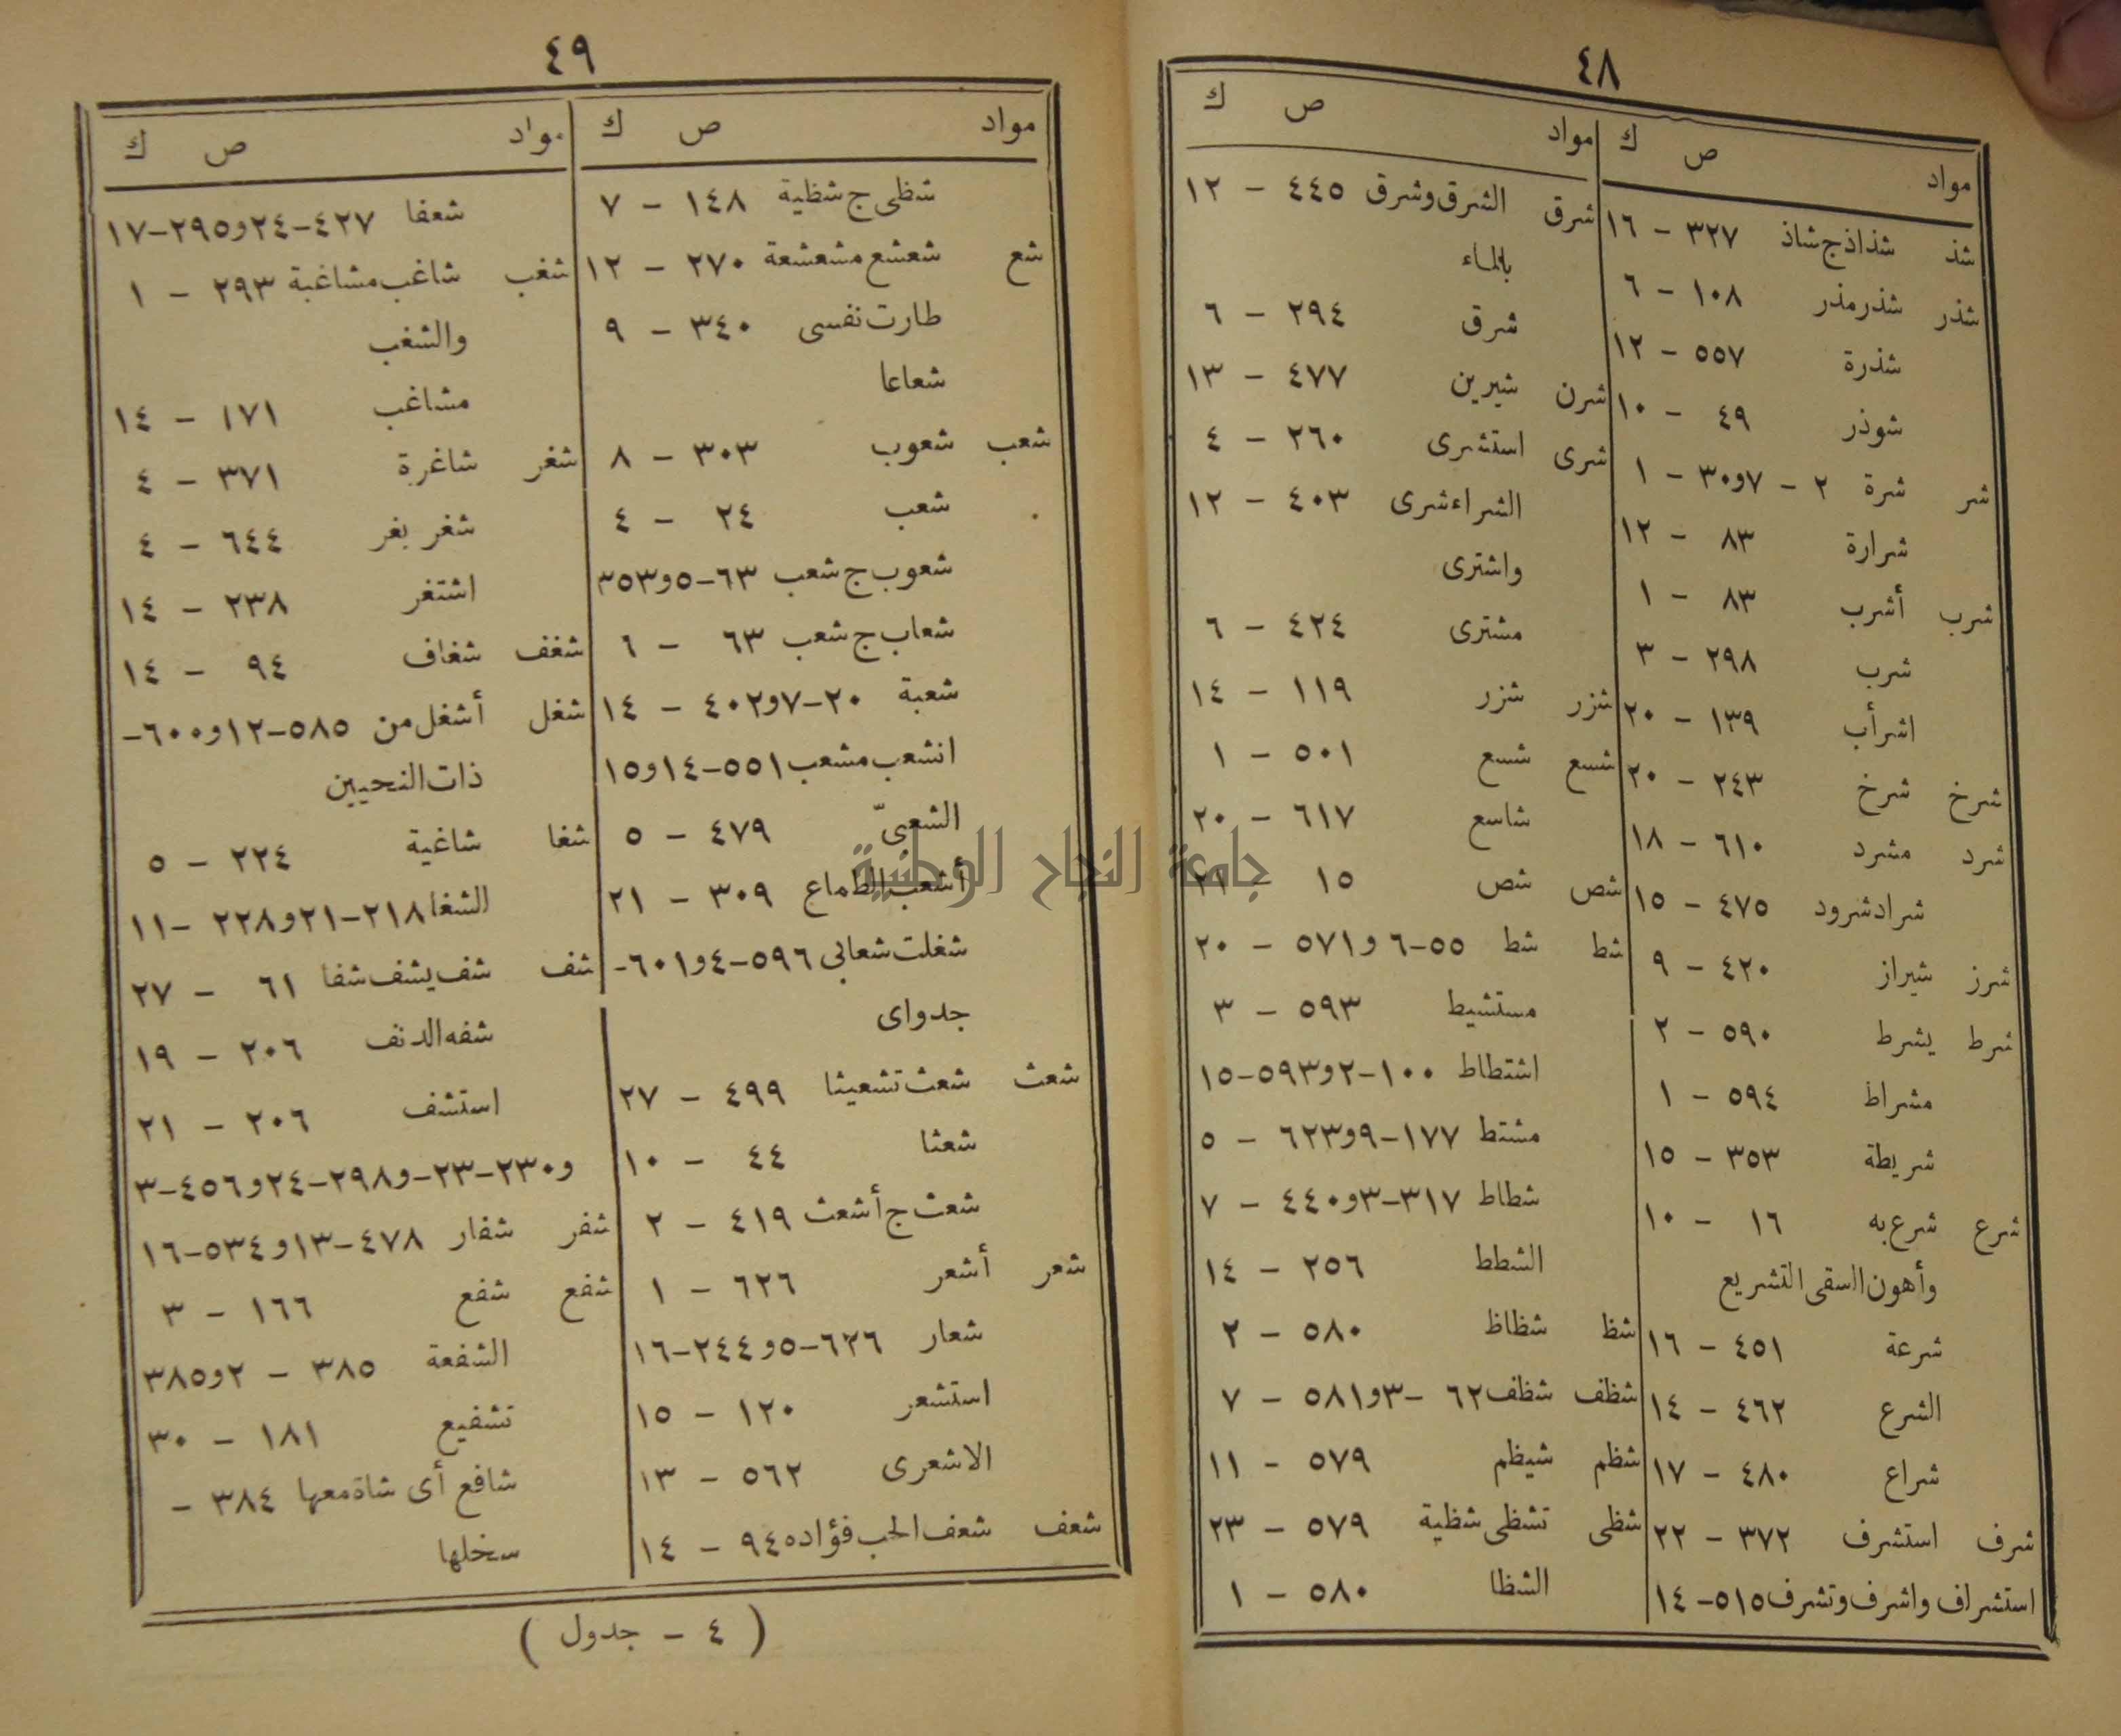 ٤٨
مواد ص ك
شذ شذاذ ج شاذ ٣٢٧ - ١٦
شذر شذر مذر ١٠٨ - ٦
شذرة ٥٥٧ - ١٢
شوذر ٤٩ - ١٠
شر شرة ٢ - ٧و٣٠ - ١
شرارة ٨٣ - ١٢
شرب أشرب ٨٣ - ١
شرب ٢٩٨ - ٣
اشرأب ١٣٩ - ٢٠
شرخ شرخ ٢٤٣ - ٢٠
شرد مشرد ٦١٠ - ١٨
شراد شرود ٤٧٥ - ١٥
شرز شيراز ٤٢٠ - ٩
شرط يشرط ٥٩٠ - ٢
مشراط ٥٩٤ - ١
شريطة ٣٥٣ - ١٥
شرع شرع به ١٦ - ١٠
وأهون السقى التشريع
شرعة ٤٥١ - ١٦
الشرع ٤٦٢ - ١٤
شراع ٤٨٠ - ١٧
شرف استشرف ٣٧٢ - ٢٢
استشراف واشرف وتشرف ٥١٥- ١٤
مواد ص ك
شرق الشرق وشرق ٤٤٥ - ١٢
بالماء
شرق ٢٩٤ - ٦
شرن شيرين ٤٧٧ - ١٣
شرى استشرى ٢٦٠ - ٤
الشراء شرى ٤٠٣ - ١٢
واشترى
مشترى ٤٢٤ - ٦
شزر شزر ١١٩ - ١٤
شسع شسع ٥٠١ - ١
شاسع ٦١٧ - ٢٠
شص شص ١٥ - ٢١
شط شط ٥٥-٦ و٥٧١ - ٢٠
مستشيط ٥٩٣ - ٣
اشتطاط ١٠٠-٢و٥٩٣-١٥
مشتط ١٧٧-٩و٦٢٣ - ٥
شطاط ٣١٧-٣و٤٤٠ - ٧
الشطط ٢٥٦ - ١٤
شظ شظاظ ٥٨٠ - ٢
شظف شظف ٦٢ -٣و٥٨١ - ٧
شظم شيظم ٥٧٩ - ١١
شظى تشظى شظية ٥٧٩ - ٢٣
الشظا ٥٨٠ - ١
٤٩
مواد ص ك
شظى ج شظية ١٤٨ - ٧
شع شعشع مشعشعة ٢٧٠ - ١٢
طارت نفسى ٣٤٠ - ٩
شعاعا
شعب شعوب ٣٠٣ - ٨
شعب ٢٤ - ٤
شعوب ج شعب ٦٣-٥و٣٥٣
شعاب ج شعب ٦٣ - ٦
شعبة ٢٠-٧و٤٠٢ - ١٤
انشعب مشعب ٥٥١-١٤و١٥
الشعبىّ ٤٧٩ - ٥
أشعب الطماع ٣٠٩ - ٢١
شغلت شعابي ٥٩٦-٤و٦٠١-
جدواى
شعث شعث تشعيثا ٤٩٩ - ٢٧
شعثا ٤٤ - ١٠
شعث ج أشعث ٤١٩ - ٢
شعر أشعر ٦٢٦ - ١
شعار ٦٢٦-٥و٢٤٤-١٦
استشعر ١٢٠ - ١٥
الاشعرى ٥٦٢ - ١٣
شعف شعف الحب فؤاده ٩٤ - ١٤
مواد ص ك
شعفا ٤٢٧-٢٤و٢٩٥-١٧
شغب شاغب مشاغبة ٢٩٣ - ١
والشغب
مشاغب ١٧١ - ١٤
شغر شاغرة ٣٧١ - ٤
شغر بغر ٦٤٤ - ٤
اشتغر ٢٣٨ - ١٤
شغف شغاف ٩٤ - ١٤
شغل أشغل من ٥٨٥-١٢و٦٠٠-
ذات النحيين
شغا شاغية ٢٢٤ - ٥
الشغا ٢١٨-٢١و٢٢٨ -١١
شف شف يشف شفا ٦١ - ٢٧
شفه الدنف ٢٠٦ - ١٩
استشف ٢٠٦ - ٢١
و٢٣٠-٢٣-و٢٩٨-٢٤و٤٥٦-٣
شفر شفار ٤٧٨-١٣و٥٣٤-١٦
شفع شفع ١٦٦ - ٣
الشفعة ٣٨٥ - ٢و٣٨٥
تشفيع ١٨١ - ٣٠
شافع أى شاة معها ٣٨٤ -
سخلها
( ٤ - جدول )
جامعة النجاح الوطنية